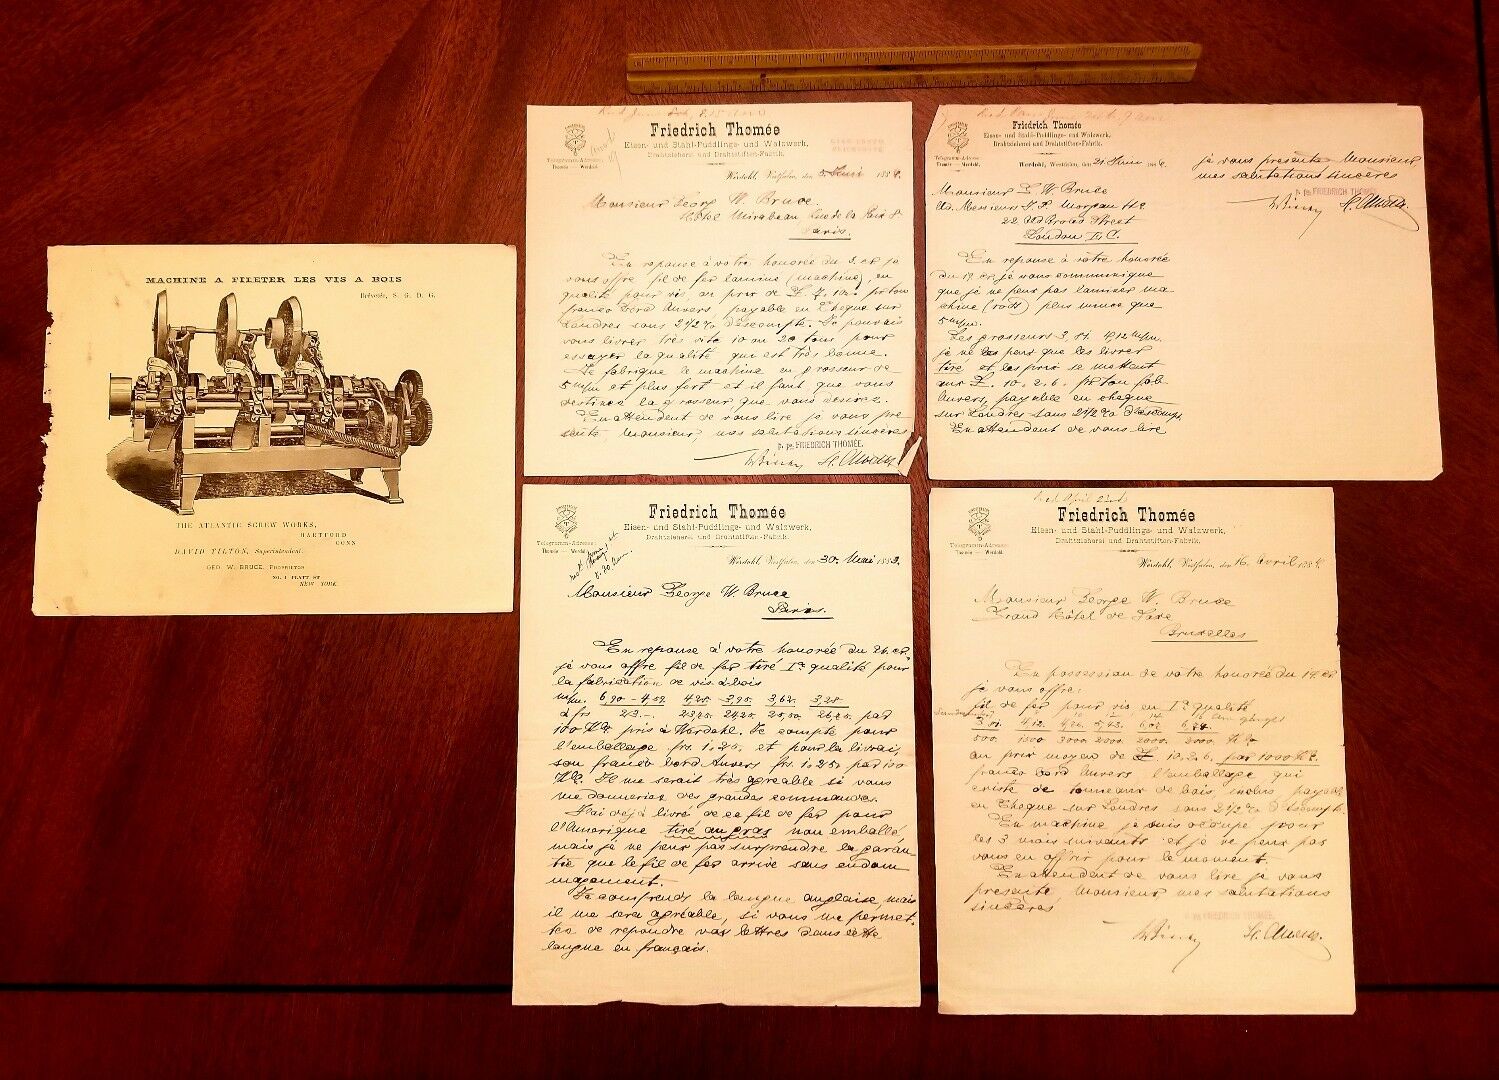 MACHINE A FILETER LES VIS A BOIS
Brévetée, S. G. D. G.
THE ATLANTIC SCREW WORKS,
HARTFORD
CONN
DAVID TILTON, Superintendent.
GEO. W. BRUCE, PROPRIETOR
NO. 1 PLATT ST
NEW YORK.
Friedrich Thomée
Eisen- und Stahl-Puddlings- und Walzwerk,
Drahtzieherei und Drahtstiften-Fabrik.
Telegramm-Adresse:
Thomée — Werdohl.
Werdohl, Westfalen, den 5 Juni 1884.
Monsieur Georg W. Bruce.
Hôtel Mirabeau, Rue de la Paix 8
Paris.
En reponse à votre honorée du 3. cr. je
vous offre fil de fer laminé (machine) en
qualité pour vis, au prix de £ 7. 10. pr ton
franco bord Anvers, payable en Cheque sur
Londres sans 2 1/2 % d'escompte. Je pouvais
vous livrer très vite 10 ou 20 tons pour
essayer la qualité qui est très bonne.
Je fabrique la machine en grosseur de
5 m/m et plus fort et il faut que vous
destinez la grosseur que vous desirez.
En attendent de vous lire je vous pré-
sente Monsieur mes salutations sincères
p. pa. FRIEDRICH THOMÉE.
Friedrich Thomée
Eisen- und Stahl-Puddlings- und Walzwerk,
Drahtzieherei und Drahtstiften-Fabrik.
Telegramm-Adresse:
Thomée — Werdohl.
Werdohl, Westfalen, den 21 Juin 188
Monsieur G. W. Bruce
22 Old Broad Street
London E. C.
En reponse à votre honorée
du 19 cr. je vous communique
que je ne peux pas laminer ma-
chine (rods) plus mince que
5 m/m.
Les grosseurs 3,51. 4,12 m/m.
je ne les peux que les livrer
tiré et les prix se mettent
sur £. 10. 2. 6. pr ton fob
Anvers, payable en cheque
sur Londres sans 2 1/2 % d'escompt.
En attendent de vous lire
je vous presente Monsieur
mes salutations sincères
p. pa. FRIEDRICH THOMÉE.
Friedrich Thomée
Eisen- und Stahl-Puddlings- und Walzwerk,
Drahtzieherei und Drahtstiften-Fabrik.
Telegramm-Adresse:
Thomée — Werdohl.
Werdohl, Westfalen, den 30. Mai 188
Monsieur George W. Bruce
Paris.
En reponse à votre honorée du 26. cr.
je vous offre fil de fer tiré Ia qualité pour
la fabrication de vis à bois
m/m.
à frs
100 Ko. pris à Werdohl. Je compte pour
l'emballage frs. 1.20. et pour la livrai-
son franco bord Anvers frs. 1.25. par 100
Ko. Il me serait très agréable si vous
me donneriez des grandes commandes.
J'ai déjà livré de ce fil de fer pour
l'Amerique tiré au gras non emballé,
mais je ne peux pas surprendre la garan-
tie que le fil de fer arrive sans endom-
magement.
Je comprends la langue anglaise, mais
il me sera agréable, si vous me permet-
tez de repondre vos lettres dans cette
langue en français.
Friedrich Thomée
Eisen- und Stahl-Puddlings- und Walzwerk,
Drahtzieherei und Drahtstiften-Fabrik.
Telegramm-Adresse:
Thomée — Werdohl.
Werdohl, Westfalen, den 16. Avril 188
Monsieur George W. Bruce
Grand Hôtel de Saxe
Bruxelles
En possession de votre honorée du 14. cr.
je vous offre:
fil de fer pour vis en Ia qualité
au prix moyen de £ 10. 2. 6. par 1000 Ko.
franco bord Anvers l'emballage qui
existe de tonneaux de bois, inclus payable
en Cheque sur Londres sans 2 1/2 % d'escompte
En machine je suis occupé pour
les 3 mois suivants et je ne peux pas
vous en offrir pour le moment.
En attendent de vous lire je vous
présente Monsieur mes salutations
sincères
p. pa. FRIEDRICH THOMÉE.